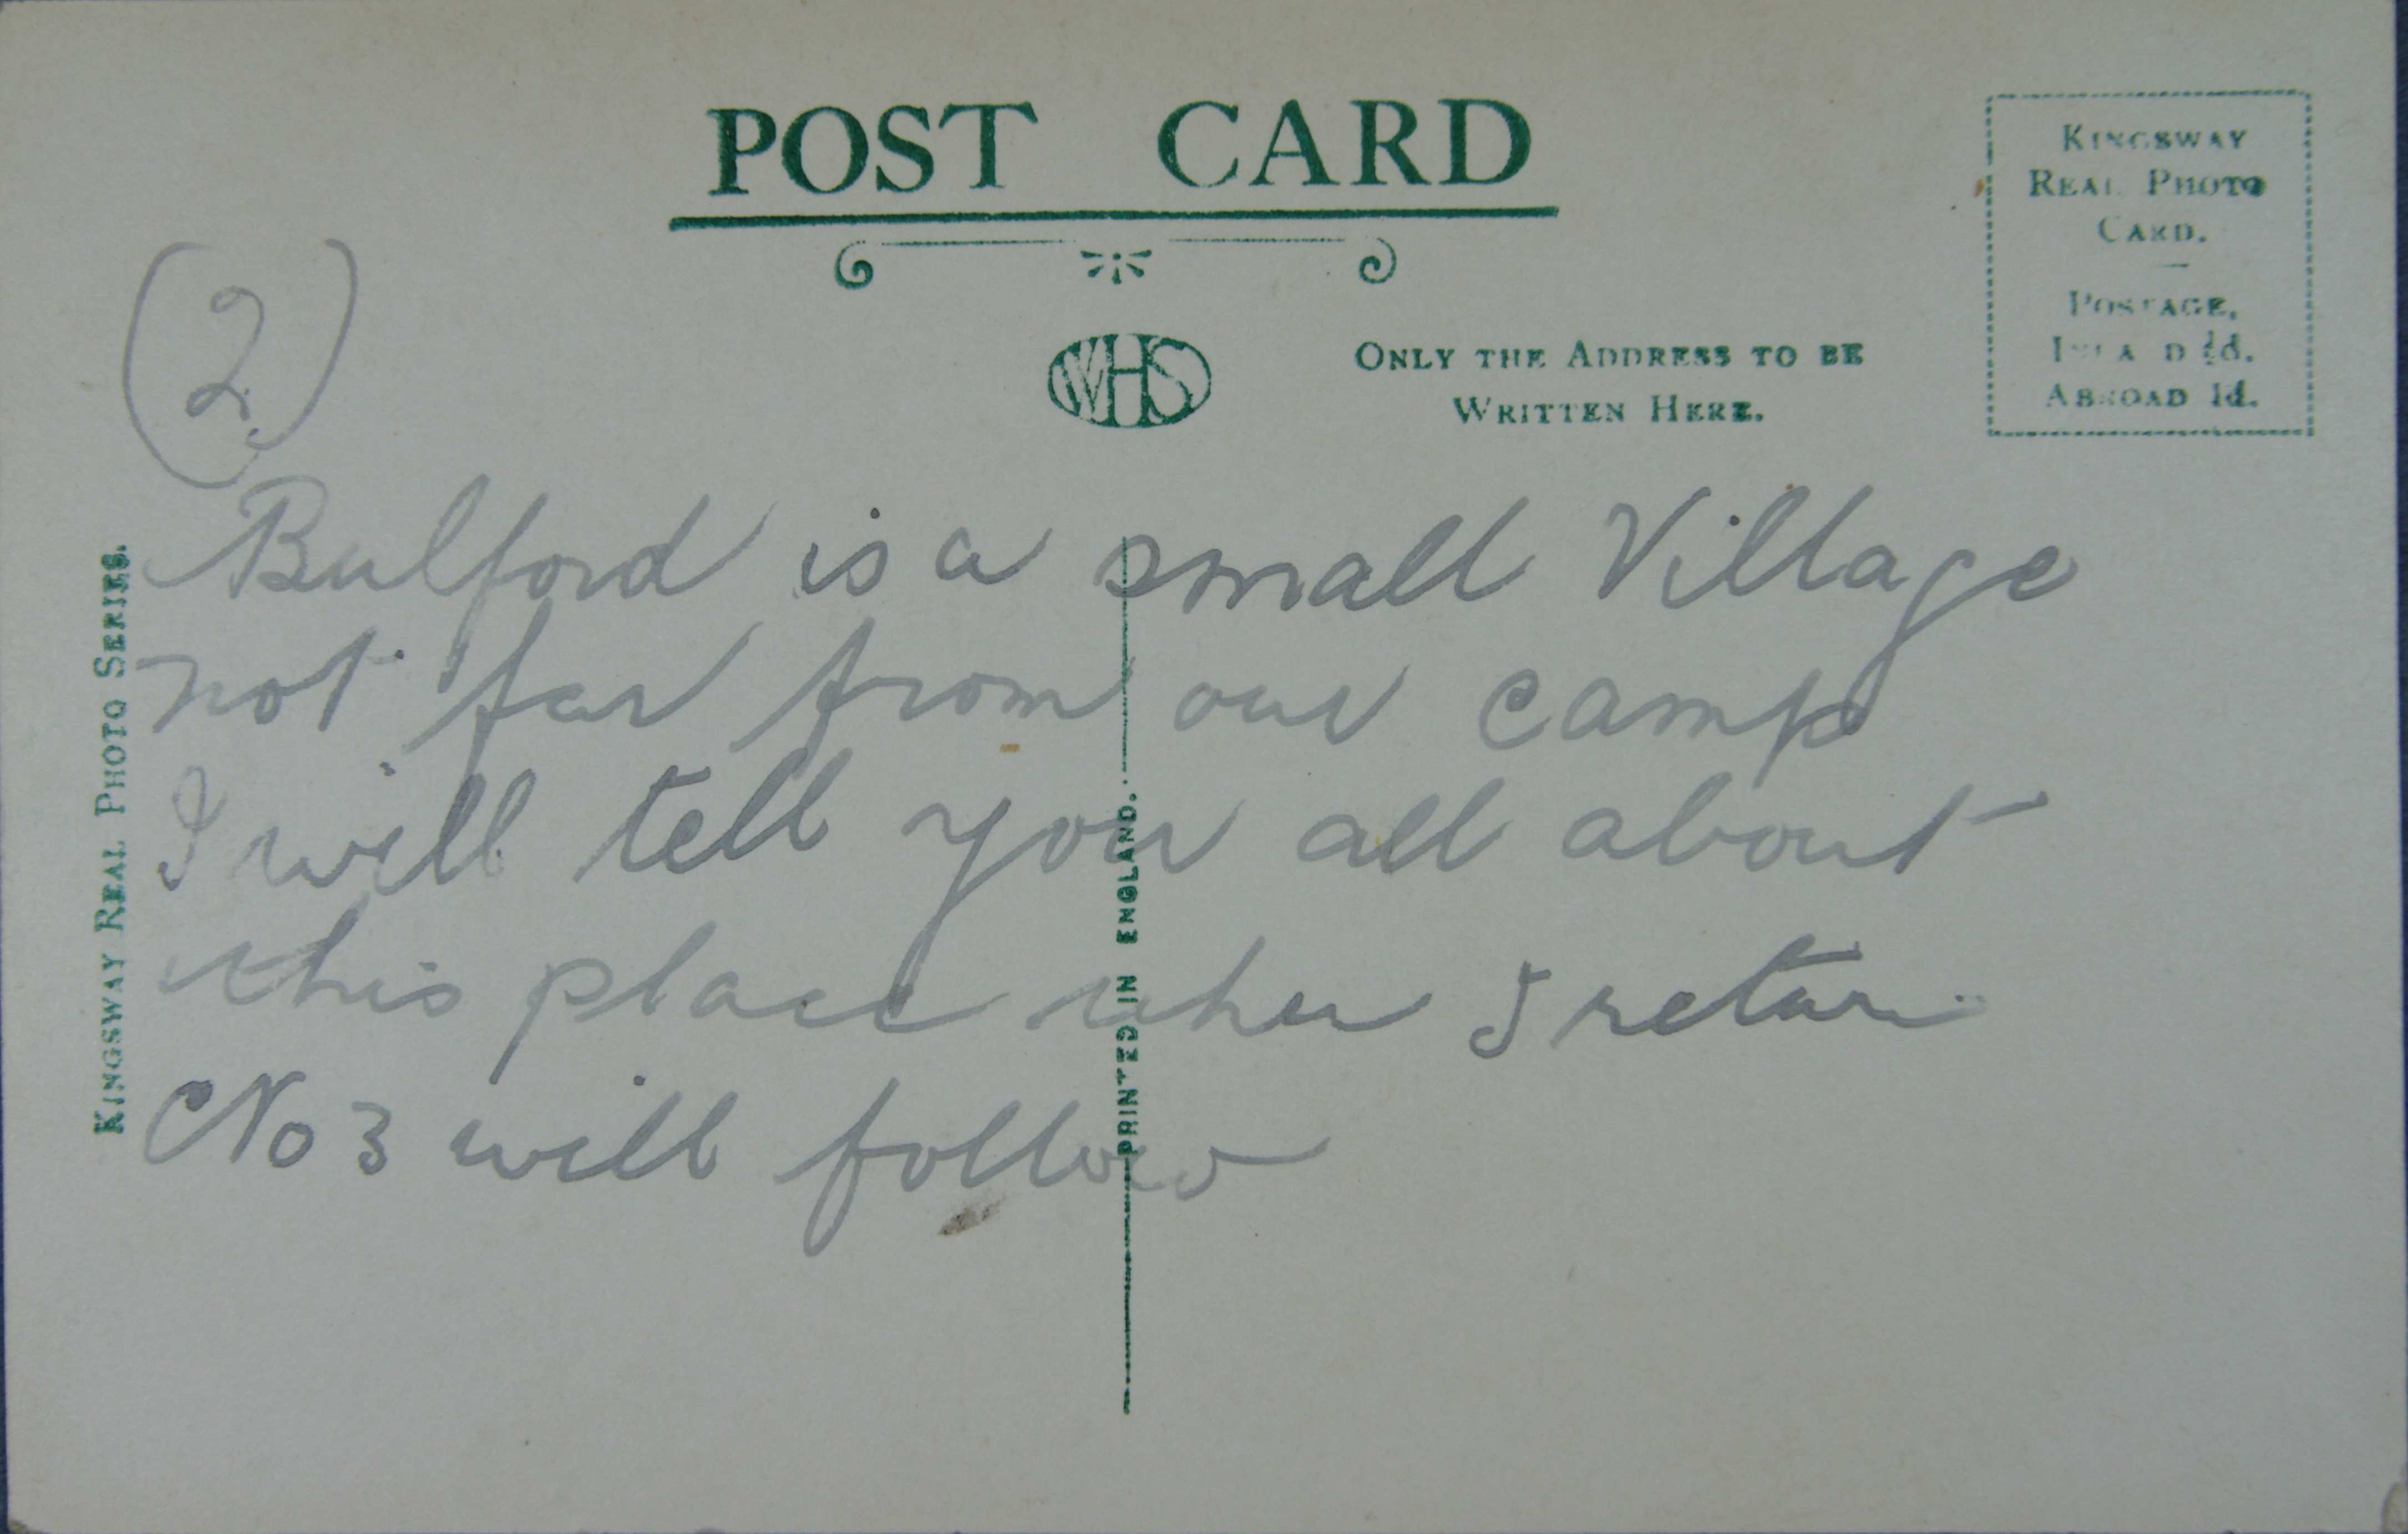 POST CARD
KINGSWAY
REAL PHOTO
CARD.
POSTAGE,
INLAND ½d.
ABROAD 1d.
WHS
ONLY THE ADDRESS TO BE
WRITTEN HERE.
KINGSWAY REAL PHOTO SERIES.
PRINTED IN ENGLAND.
(2)
Bulford is a small Village
not far from our camp
I will tell you all about
this place when I return
No 3 will follow